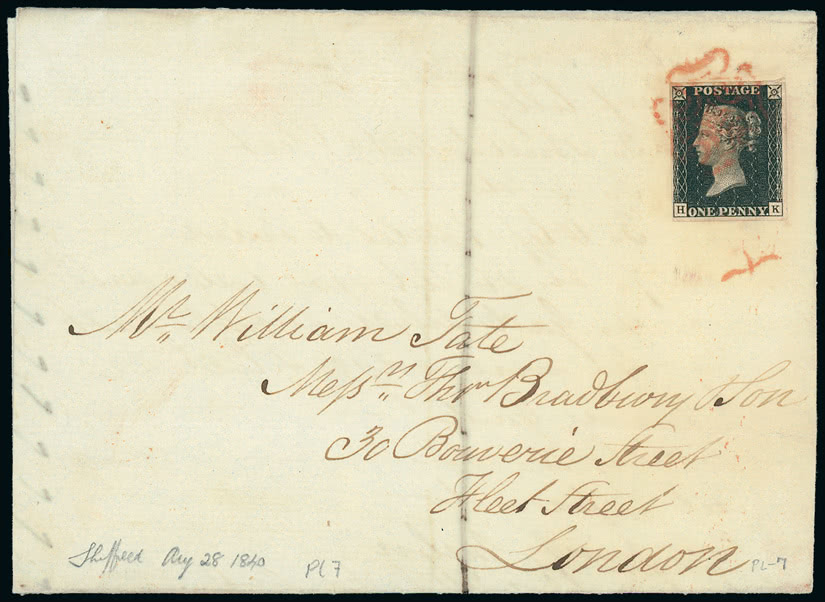 POSTAGE
H ONE PENNY K
Mr. William Tate
Messrs. Thos. Bradbury & Son
30 Bouverie Street
Fleet Street
London
Sheffield Aug 28 1840 PL 7
PL-7